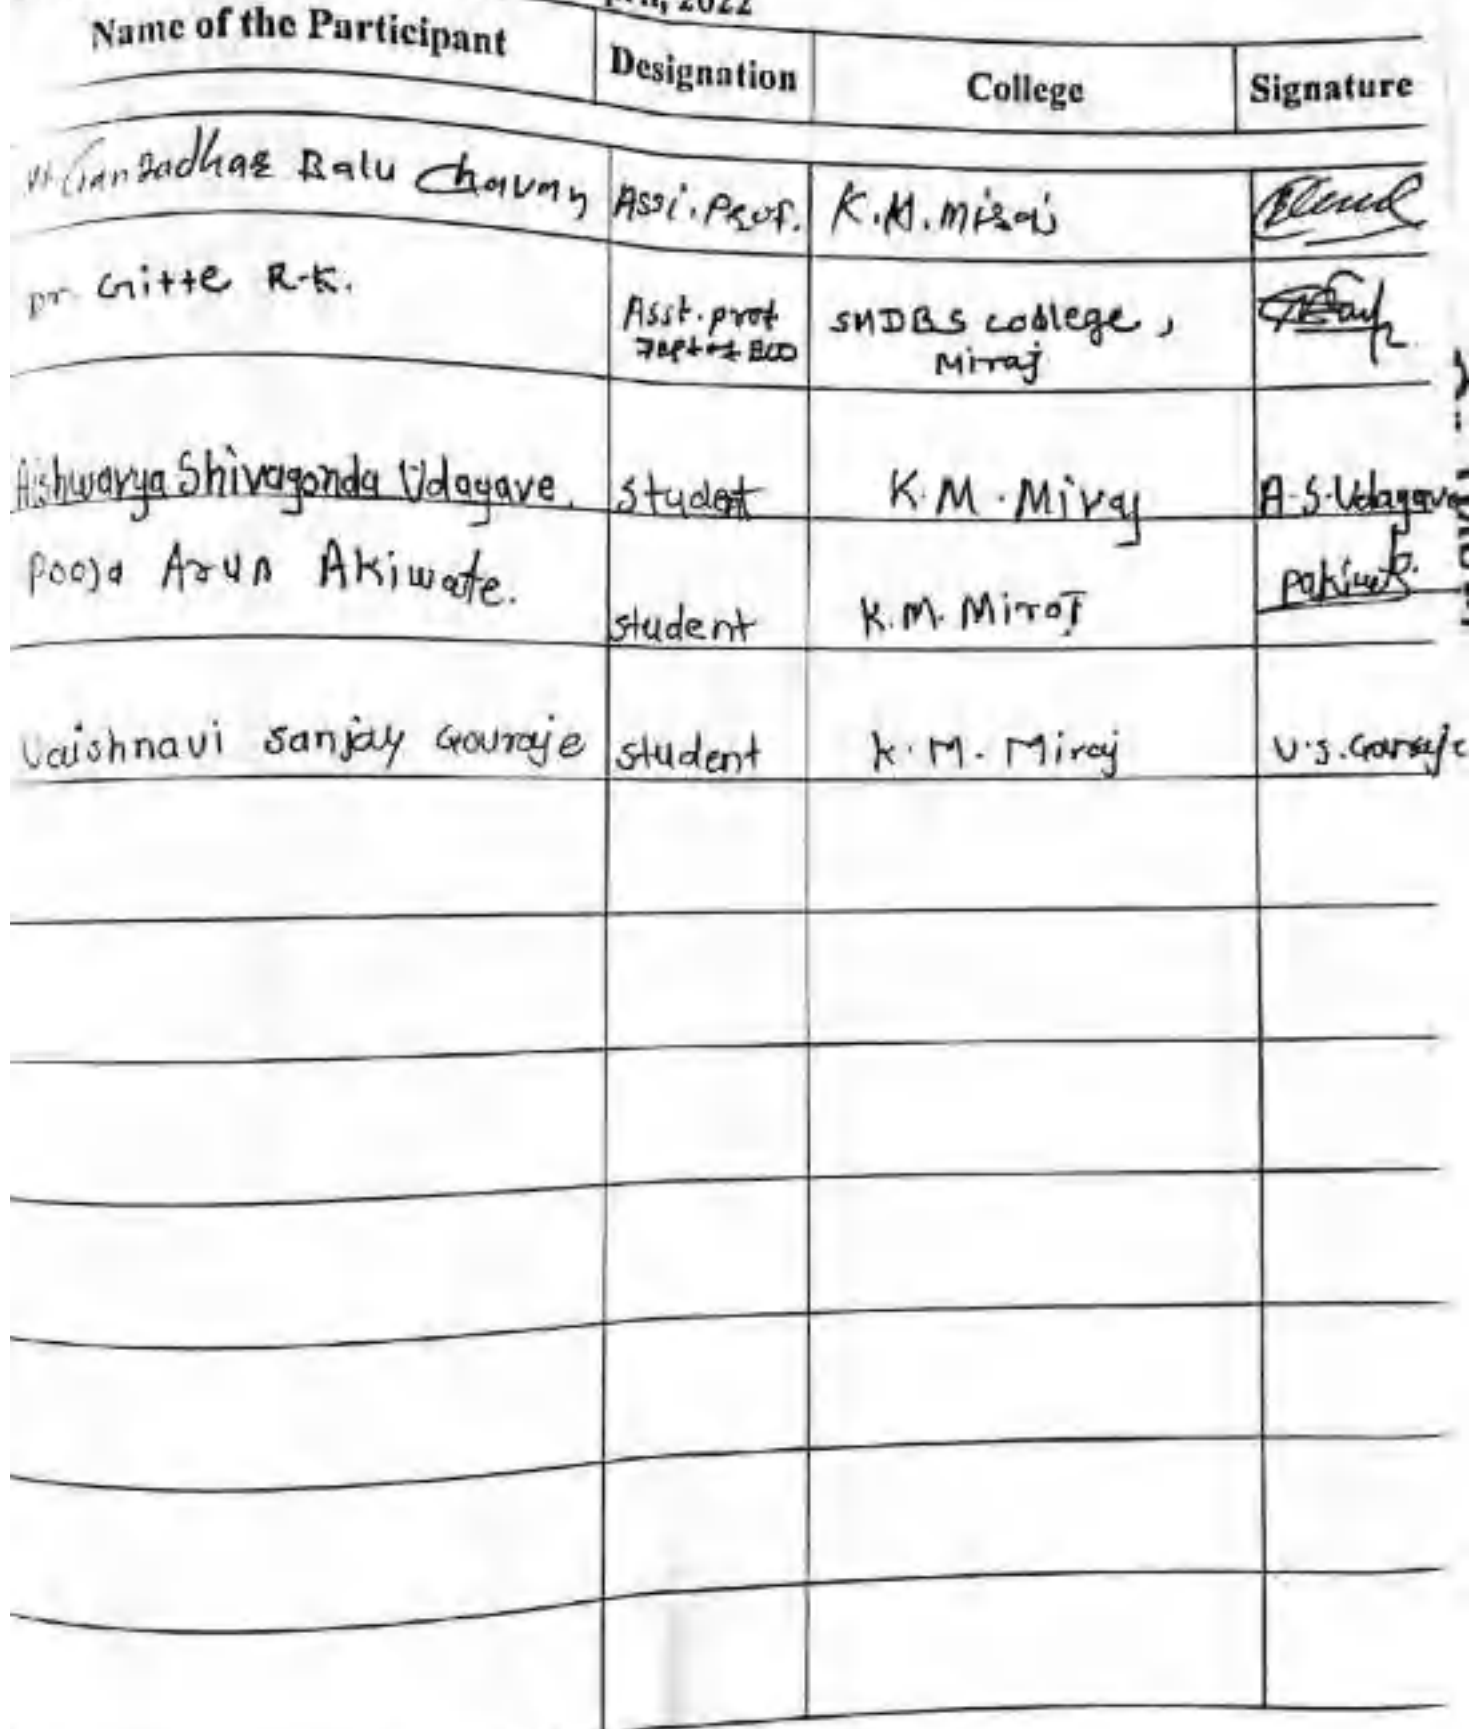 2022
Name of the Participant Designation College Signature
Gangadhar Balu Chavan Assi. Prof. K.M. Miraj
Dr. Gitte R.K. Asst. prof SMDBS college,
Dept of ECO Miraj
Aishwarya Shivagonda Udagave. Student K.M. Miraj A.S. Udagave
Pooja Arun Akiwate. student K.M. Miraj pakiwate
Vaishnavi Sanjay Gouraje student K.M. Miraj V.S. Gouraje